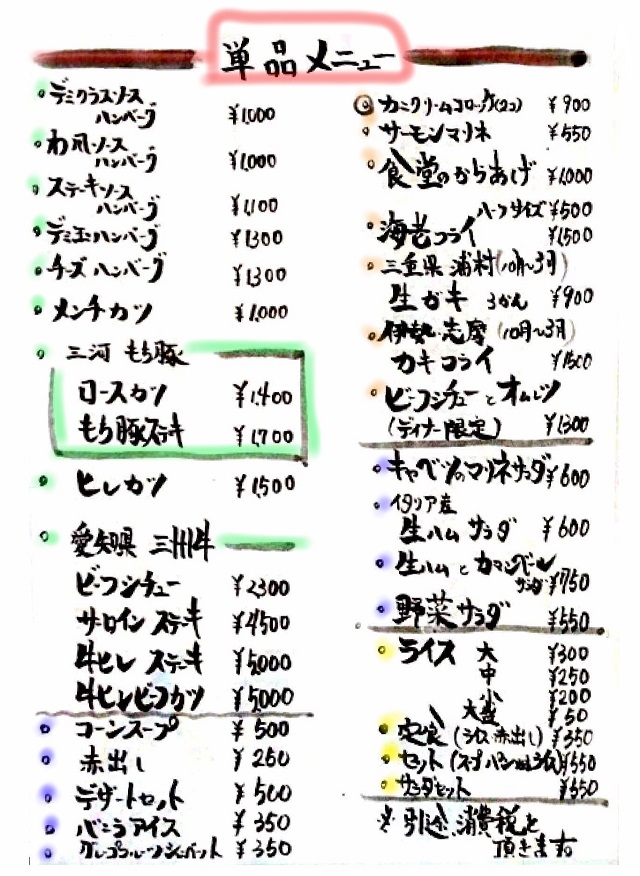 単品メニュー
デミグラスソース
ハンバーグ ¥1,000
わ風ソース
ハンバーグ ¥1,000
ステーキソース
ハンバーグ ¥1,100
デミ玉ハンバーグ ¥1300
チーズハンバーグ ¥1300
メンチカツ ¥1,000
三河 もち豚
ロースカツ ¥1,400
もち豚ステーキ ¥1,700
ヒレカツ ¥1,500
愛知県 三州牛
ビーフシチュー ¥2300
サーロインステーキ ¥4500
牛ヒレステーキ ¥5,000
牛ヒレビーフカツ ¥5,000
コーンスープ ¥500
赤出し ¥250
デザートセット ¥500
バニラアイス ¥350
グレープフルーツシャーベット ¥350
カニクリームコロッケ(2コ) ¥900
サーモンマリネ ¥550
食堂のからあげ ¥1,000
ハーフサイズ ¥500
海老フライ ¥1,500
三重県 浦村(10月〜3月)
生ガキ 3かん ¥900
伊勢志摩(10月〜3月)
カキフライ ¥1500
ビーフシチューとオムレツ
(ディナー限定) ¥1,300
キャベツのマリネサラダ ¥600
イタリア産
生ハムサラダ ¥600
生ハムとカマンベール
サラダ ¥750
野菜サラダ ¥550
ライス 大 ¥300
中 ¥250
小 ¥200
大盛 ¥50
定食(ライス・赤出し) ¥350
セット(スープ パンorライス) ¥550
サラダセット ¥550
※引途消費税を
頂きます